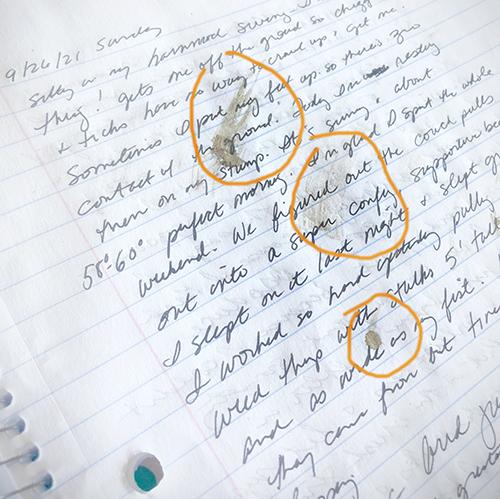 9/26/21 Sunday
Sitting in my hammock swing - I
thing! Gets me off the ground so chiggers
& ticks have no way to crawl up & get me.
Sometimes I put my feet up so there's zero
contact w/ the ground. Today I'm resting
them on my stump. It's sunny & about
58°-60° perfect morning. I'm glad I spent the whole
weekend. We figured out the couch pulls
out into a super comfy, supportive bed
I slept on it last night & slept g
I worked so hard yesterday pulling
weed things with stalks 5' tall
and as wide as my fist.
they came from but
and